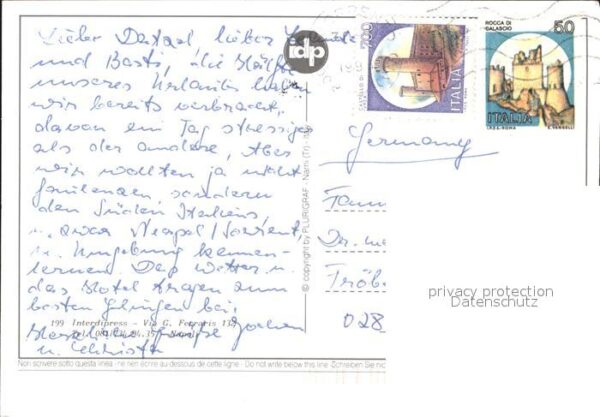 Lieber Detlef, lieber
und Basti, die Hälfte
unseres Urlaubs haben
wir bereits verbracht,
davon ein Tag stressiger
als der andere, Aber
wir wollten ja nicht
faulenzen, sondern
den Süden Italiens,
u. zwar Neapel/Sorrent,
u. Umgebung kennen-
lernen. Das Wetter u.
das Hotel tragen zum
besten Gelingen bei,
199 Interdipress - Via G. Ferraris
Herzliche Grüße Jochen
u.
Non scrivere sotto questa linea - ne rien écrire au-dessous de cette ligne - Do not write below this line - Schreiben Sie nic
idp
© copyright by PLURIGRAF - Narni (Tr)
700
ITALIA
ROCCA DI
CALASCIO
50
ITALIA
I.P.Z.S. ROMA
E. VANGELLI
Germany
Fam
Dr.
Fröb
028
privacy protection
Datenschutz